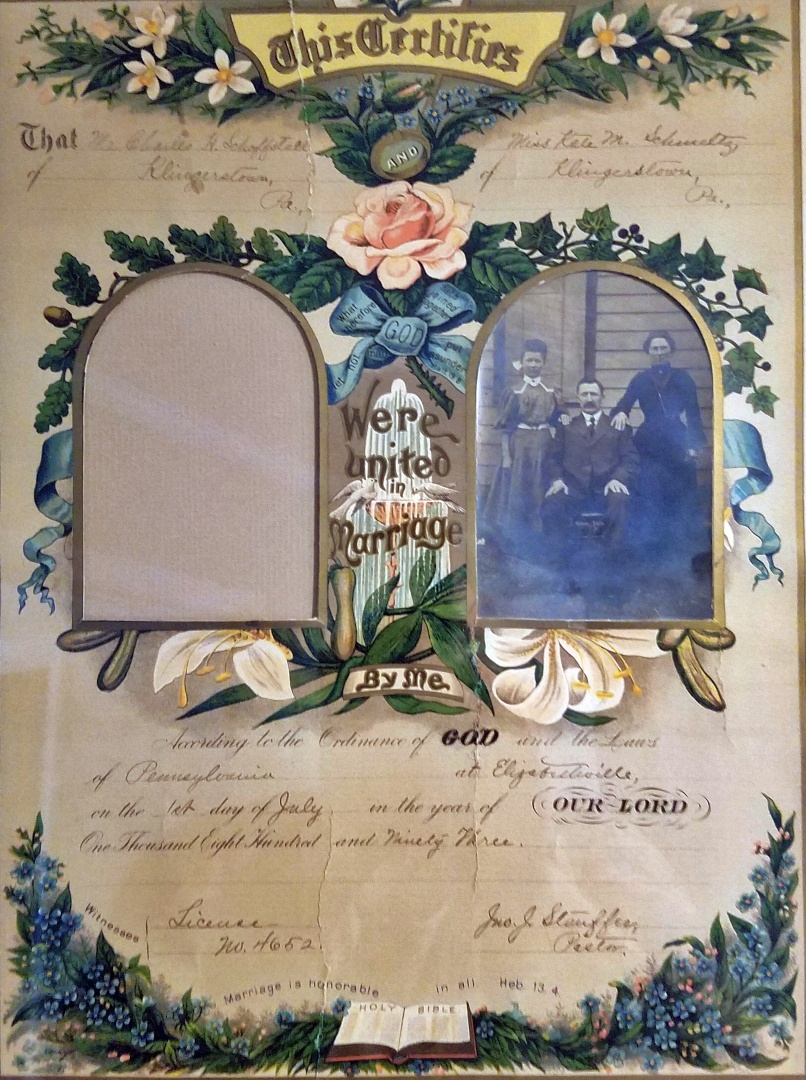 This Certifies
That Mr. Charles H. Schoffstall AND Miss Kate M. Schmeltz,
of Klingerstown, Pa., of Klingerstown, Pa.,
What therefore GOD joined together
let not man put asunder
Were
united
in
Marriage
By Me
According to the Ordinance of GOD and the Laws
of Pennsylvania at Elizabethville,
on the 1st day of July in the year of OUR LORD
One Thousand Eight Hundred and Ninety Three.
Witnesses
License
No. 4652.
Jno. J. Stauffer,
Pastor.
Marriage is honorable in all Heb. 13. 4.
HOLY BIBLE